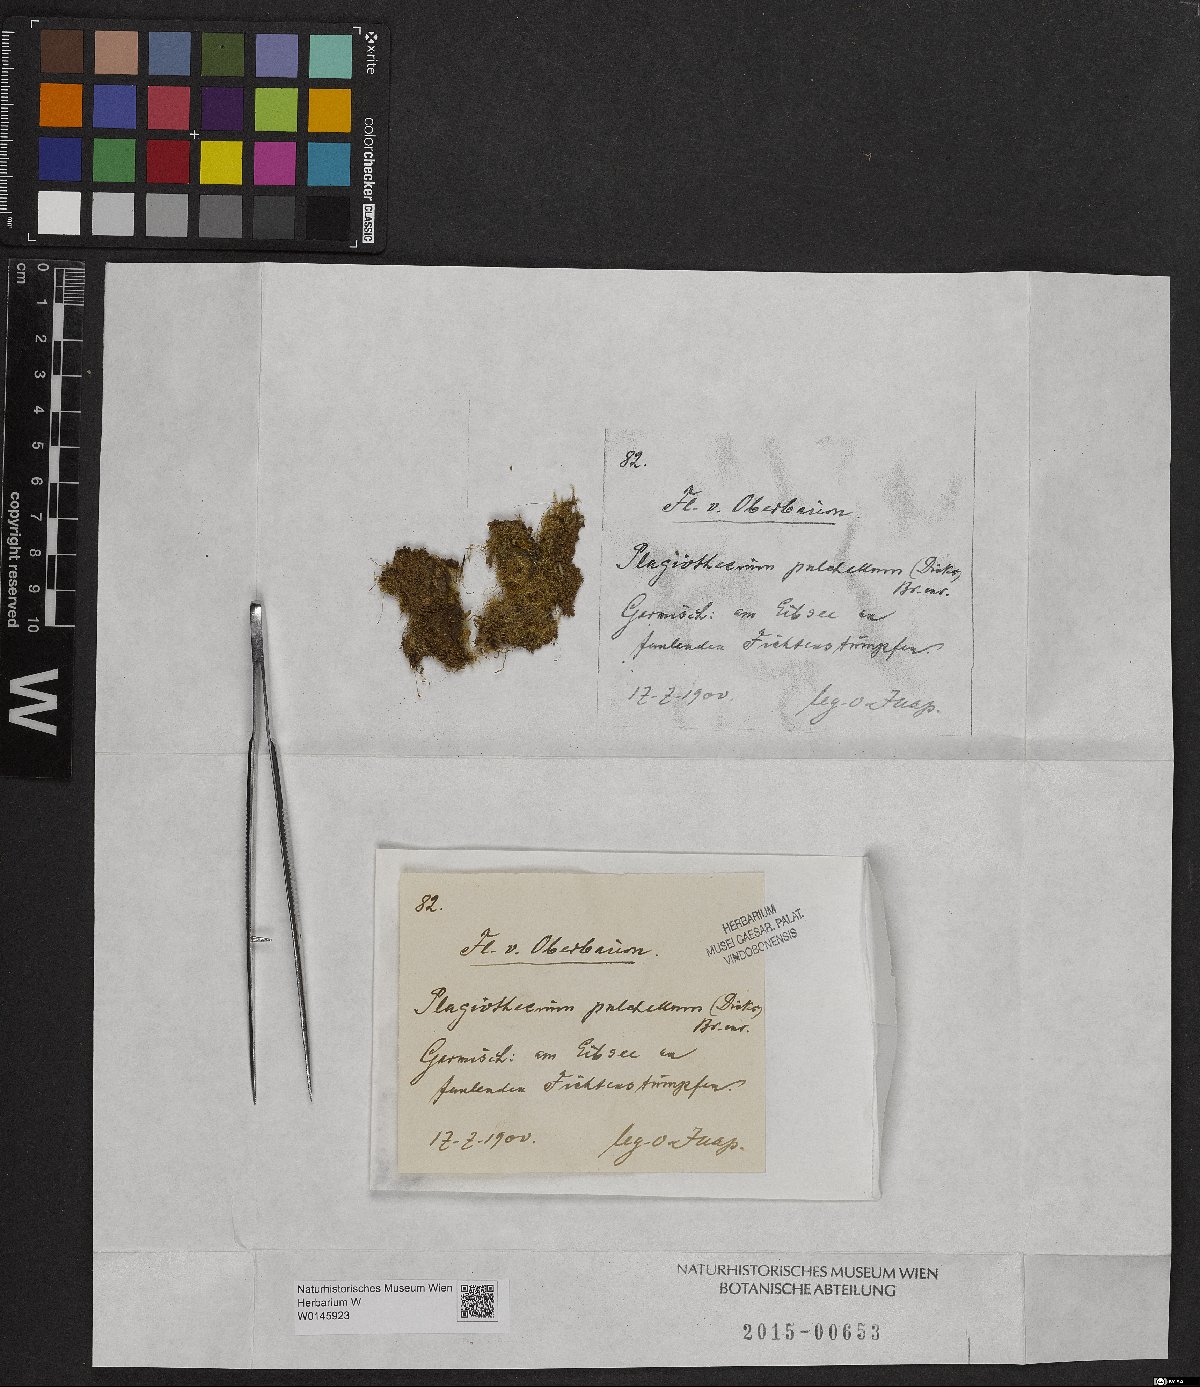 x-rite
colorchecker CLASSIC
mm
0 1 2 3 4 5 6 7 8 9 10
cm
copyright reserved
W
82.
Fl. v. Oberbaiern
Plagiothecium pulchellum (Dicks)
Br. eur.
Garmisch: am Eibsee an
faulenden Fichtenstümpfen.
17-7-1900
leg.
82.
Fl. v. Oberbaiern.
Plagiothecium pulchellum (Dicks)
Br. eur.
Garmisch: am Eibsee an
faulenden Fichtenstümpfen.
17-7-1900.
leg.
HERBARIUM
MUSEI CAESAR. PALAT.
VINDOBONENSIS
Naturhistorisches Museum Wien
Herbarium W
W0145923
NATURHISTORISCHES MUSEUM WIEN
BOTANISCHE ABTEILUNG
2015-00653